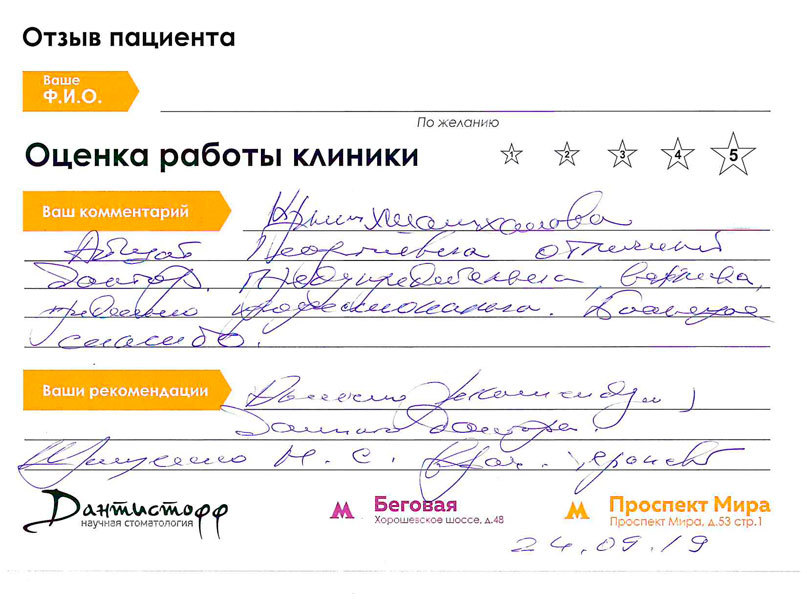 Отзыв пациента
Ваше
Ф.И.О.
По желанию
Оценка работы клиники
1 2 3 4 5
Ваш комментарий
Георгиевна отличный
доктор. Предупредительна, вежлива,
предельно профессиональна. Большое
спасибо.
Ваши рекомендации
рекомендую
данного доктора.
М. С. Врач
Дантистофф
научная стоматология
Беговая
Хорошевское шоссе, д.48
Проспект Мира
Проспект Мира, д.53 стр.1
24.09.19